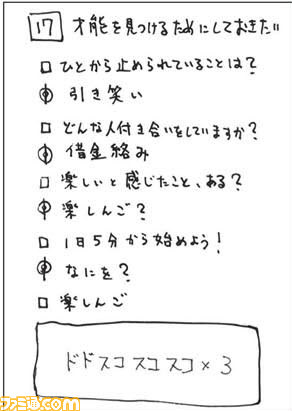 17 才能を見つけるためにしておきたい
□ ひとから止められていることは?
引き笑い
□ どんな人付き合いをしていますか?
借金絡み
□ 楽しいと感じたこと、ある?
楽しんご?
□ 1日5分から始めよう!
なにを?
□ 楽しんご
ドドスコスコスコ×3
ファミ通.com